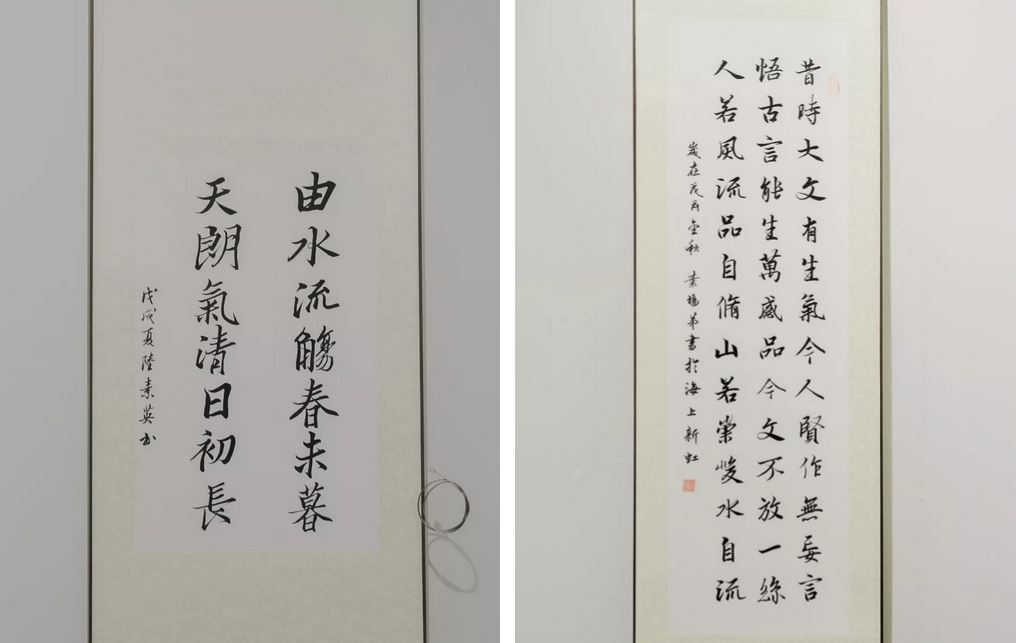 由水流觴春未暮
天朗氣清日初長
戊戌夏陸素英书
昔時大文有生氣今人賢作無妄言
悟古言能生萬感品今文不放一絲
人若風流品自脩山若崇峻水自流
歲在戊戌金秋 書於海上新虹